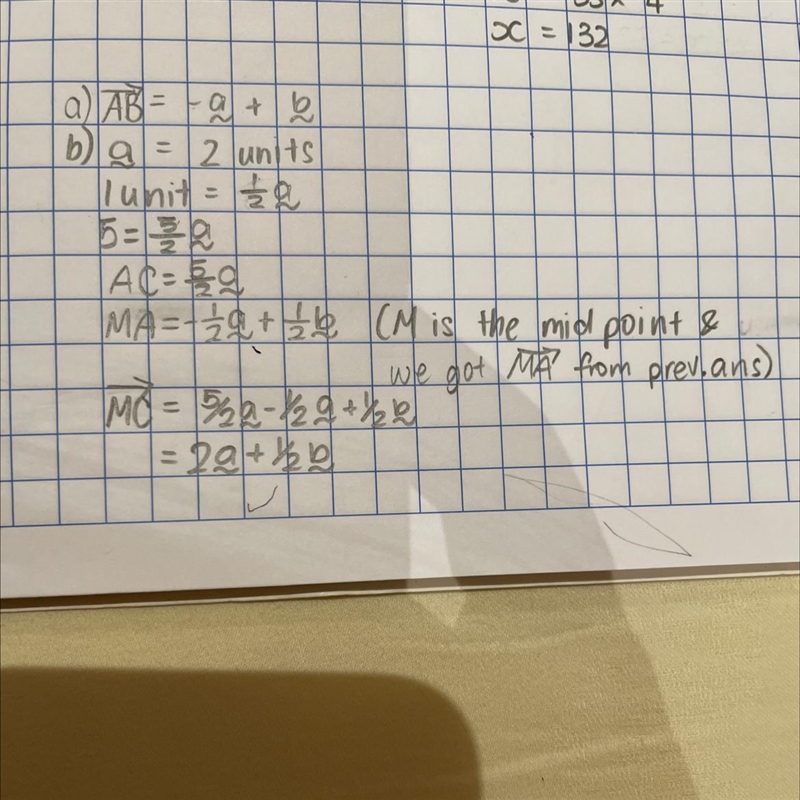 x = 132
a) AB = -a + b
b) a = 2 units
1 unit = 1/2 a
5 = 5/2 a
AC = 5/2 a
MA = -1/2 a + 1/2 b (M is the mid point &
we got MA from prev. ans)
MC = 5/2 a - 1/2 a + 1/2 b
= 2a + 1/2 b